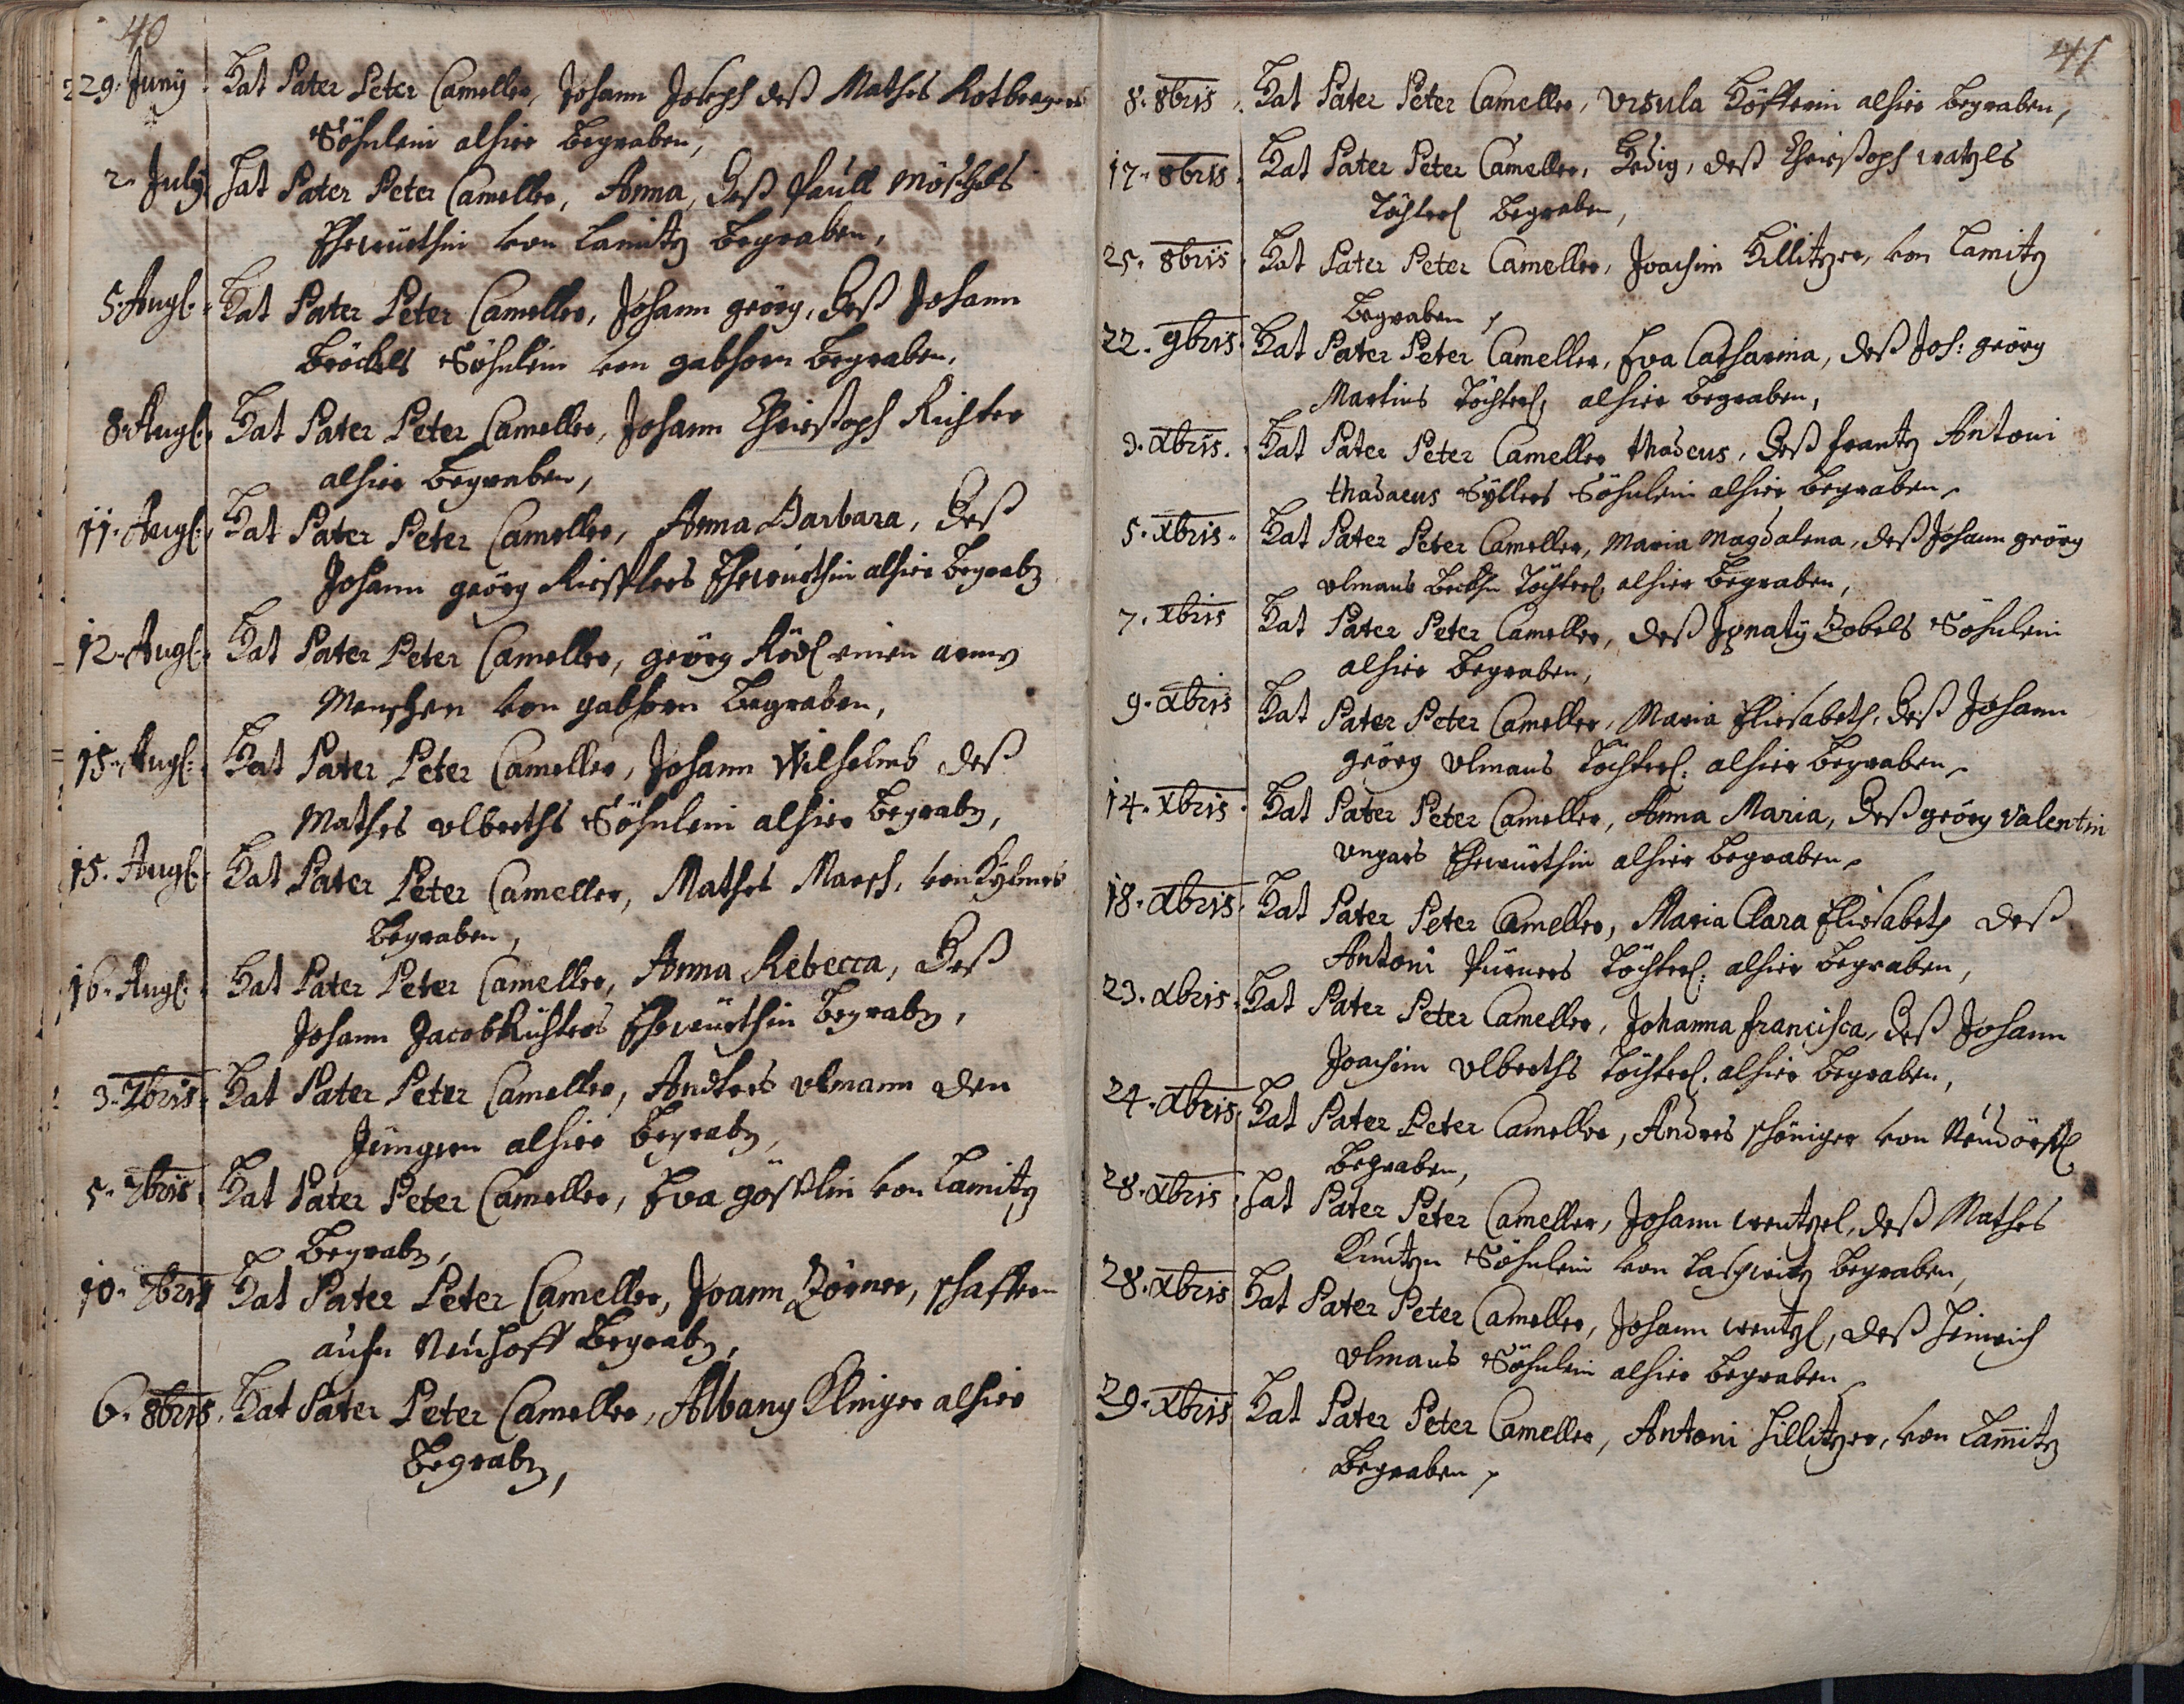 40
29. Juny Hat Pater Peter Cameller, Johann Joseph deß Mathes Rotbeagers
Söhnlein alhier begraben,
2. July Hat Pater Peter Cameller, Anna, deß Paull Möschels
Ehewürthin von Lamitz begraben,
5. Aug: Hat Pater Peter Cameller, Johann georg, deß Johann
Bröckels Söhnlein von gabhorn begraben,
8. Aug: Hat Pater Peter Cameller, Johann Christoph Richter
alhier begraben,
11. Aug: Hat Pater Peter Cameller, Anna Barbara, deß
Johann geörg Ehewürthin alhier begrabn
12. Aug: Hat Pater Peter Cameller, geörg Rödl einen armen
Menschen von gabhorn begraben,
15. Aug: Hat Pater Peter Cameller, Johann Wilhelmb deß
Mathes Ulberths Söhnlein alhier begrabn,
15. Aug: Hat Pater Peter Cameller, Mathes Marsch, von
begraben,
16. Aug: Hat Pater Peter Cameller, Anna Rebecca, deß
Johann Jacob Richters Ehewürthin begrabn,
3. 7bris Hat Pater Peter Cameller, Andres Ulmann den
Jüngern alhier begrabn,
5. 7bris Hat Pater Peter Cameller, Eva von Lamitz
begrabn,
10. 7bris Hat Pater Peter Cameller, Joann Zörner, schaffern
aufn Neuhoff begrabn,
6. 8bris Hat Pater Peter Cameller, Albany Klinger alhier
begrabn,
41
8. 8bris Hat Pater Peter Cameller, Ursula Höfferin alhier begraben,
17. 8bris Hat Pater Peter Cameller, Hedig, deß Christoph watzls
Töchterl begraben,
25. 8bris Hat Pater Peter Cameller, Joachim Hillitzer, von Lamitz
begraben
22. 9bris Hat Pater Peter Cameller, Eva Catharina, deß Joh: geörg
Martins Töchterl, alhier begraben,
3. Xbris. Hat Pater Peter Cameller thadeus, deß frantz Antoni
thadaeus Syllers Söhnlein alhier begraben
5. Xbris Hat Pater Peter Cameller, Maria Magdalena, deß Johann geörg
Ulmans Töchterl, alhier begraben,
7. Xbris Hat Pater Peter Cameller, deß Ignaty Zobels Söhnlein
alhier begraben,
9. Xbris Hat Pater Peter Cameller, Maria Eliesabeth, deß Johann
geörg Ulmans Töchterl: alhier begraben
14. Xbris Hat Pater Peter Cameller, Anna Maria, deß geörg Valentin
Ungars Ehewürthin alhier begraben
18. Xbris Hat Pater Peter Cameller, Maria Clara Eliesabeth deß
Antoni Pürners Töchterl: alhier begraben,
23. Xbris Hat Pater Peter Cameller, Johanna francisca, deß Johann
Joachim Ulberths Töchterl. alhier begraben,
24. Xbris Hat Pater Peter Cameller, Andres schöniger von Neudörffl
begraben,
28. Xbris Hat Pater Peter Cameller, Johann wentzel, deß Mathes
Kuntzn Söhnlein von begraben,
28. Xbris Hat Pater Peter Cameller, Johann wentzl, deß Heinrich
Ulmans Söhnlein alhier begraben
29. Xbris Hat Pater Peter Cameller, Antoni Hillitzer, von Lamitz
begraben